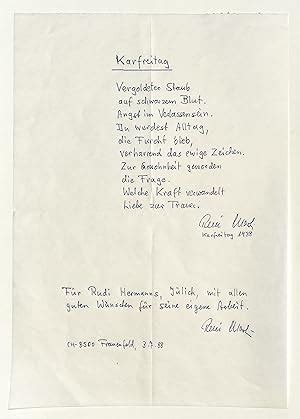 Karfreitag
Vergoldeter Staub
auf schwarzem Blut.
Angst im Verlassensein.
Du wurdest Alltag,
die Furcht blieb,
verharrend das ewige Zeichen.
Zur Gewohnheit geworden
die Frage.
Welche Kraft verwandelt
Liebe zur Trauer.
Karfreitag 1988
Für Rudi Hermanns, Jülich, mit allen
guten Wünschen für seine eigene Arbeit.
CH-8500 Frauenfeld, 3.7.88